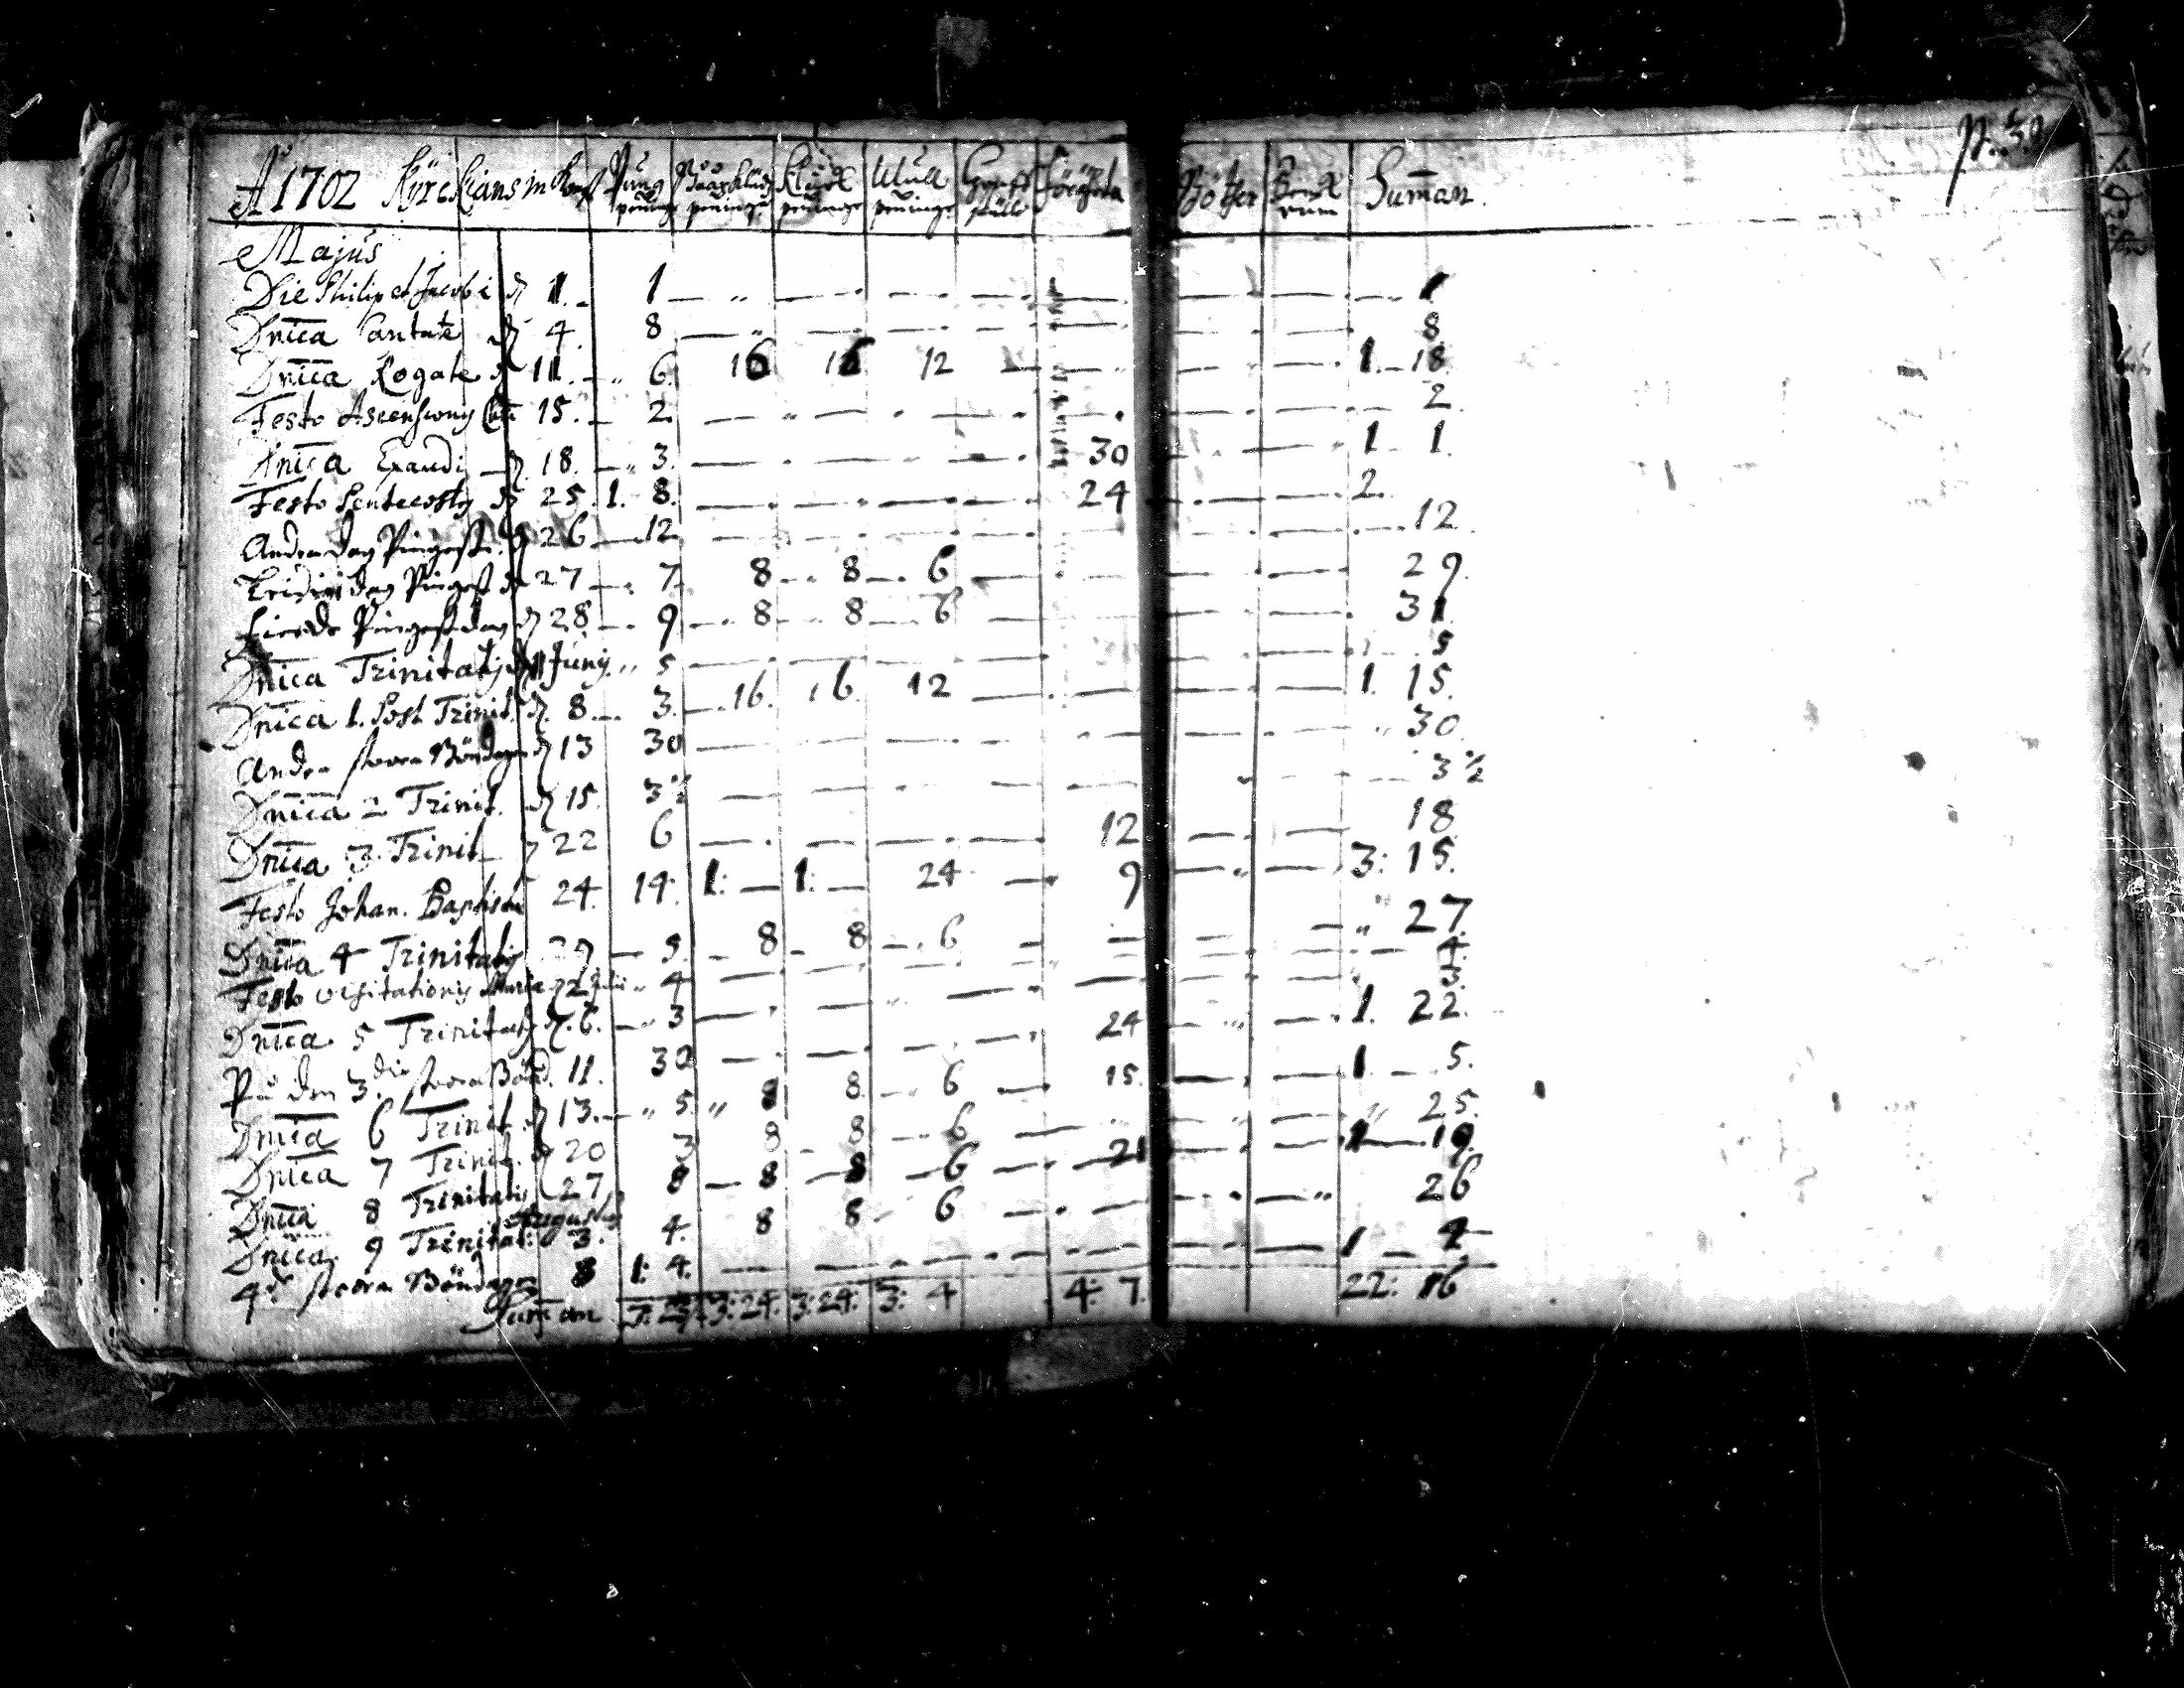 p. 30
Aō 1702 Kyrckians inkombst Pung peninge Bååxklude peninge Klåck peninge Mull peninge Graff ställe Förgäta Böther Benk rum Sum̄an.
Majus
Die Philip et Jacobi d 1. 1 — — — — — — — 1
Dn̄ica Cantate d 4. 8 — — — — — — — 8
Dn̄ica Rogate d 11. 6. 16 16 12 — — — — 1. 18.
Festo Ascensionis 15. 2 — — — — — — — 2.
Dn̄ica Exaudi d 18. 3. — — — — 30 — — 1 1.
Festo Pentecostes d 25. 1. 8. — — — — 24 — — 2.
Andra dag Pingest. d 26 12 — — — — — — — 12.
Tridie dag Pingest d 27 7 8 8 6 — — — — 29.
Fierde Pingesdag d 28 9 8 8 6 — — — — 31.
Dn̄ica Trinitatis d 1 Junij 5 — — — — — — — 5
Dn̄ica 1. Post Trinit. d. 8 3. 16. 16. 12 — — — — 1. 15.
Andra stora Böndagen d 13 30 — — — — — — — 30.
Dn̄ica 2 Trinit. d 15. 3½ — — — — — — — 3½
Dn̄ica 3. Trinit d 22 6 — — — — 12 — — 18.
Festo Johan. Baptistæ 24. 14. 1: — 1: — 24 — 9 — — 3: 15.
Dn̄ica 4 Trinitatis 29 5 8 8 6 — — — — 27.
Festo visitationis Mariæ 2 Julii 4 — — — — — — — 4.
Dn̄ica 5 Trinitatis d. 6. 3 — — — — — — — 3.
På den 3. die stora Bönd. 11. 30 — — — — 24 — — 1. 22.
Dn̄ica 6 Trinit. d 13. 5 8 8. 6 — 15. — — 1 5.
Dn̄ica 7 Trinit. d 20 3 8 8 6 — — — — 25.
Dn̄ica 8 Trinitatis 27 8 8 8 6 — 21 — — 1 19.
Augustus
Dn̄ica 9 Trinitat: 3. 4. 8 8 6 — — — — 26
4de stora Böndagen 8 1: 4. — — — — — — — 1 4
Sum̄an 7: 29. 3: 24. 3: 24. 3: 4 4: 7. 22: 16